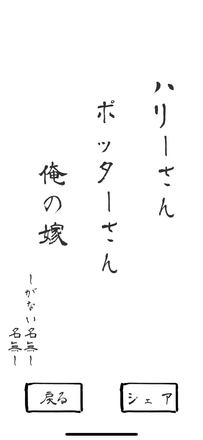 ハリーさん
ポッターさん
俺の嫁
しがない名無し
名無し
戻る
シェア